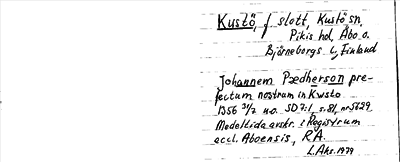 Kustö, f slott, Kustö sn,
Pikis hd, Åbo o.
Björneborgs l, Finland
Johannem Pædherson pre-
fectum nostrum in Kwsto
1356 31/7 u.o. SD 7:1 s. 81 nr 5629
Medeltida avskr. i Registrum
eccl. Aboensis, RA.
L. Aks. 1979